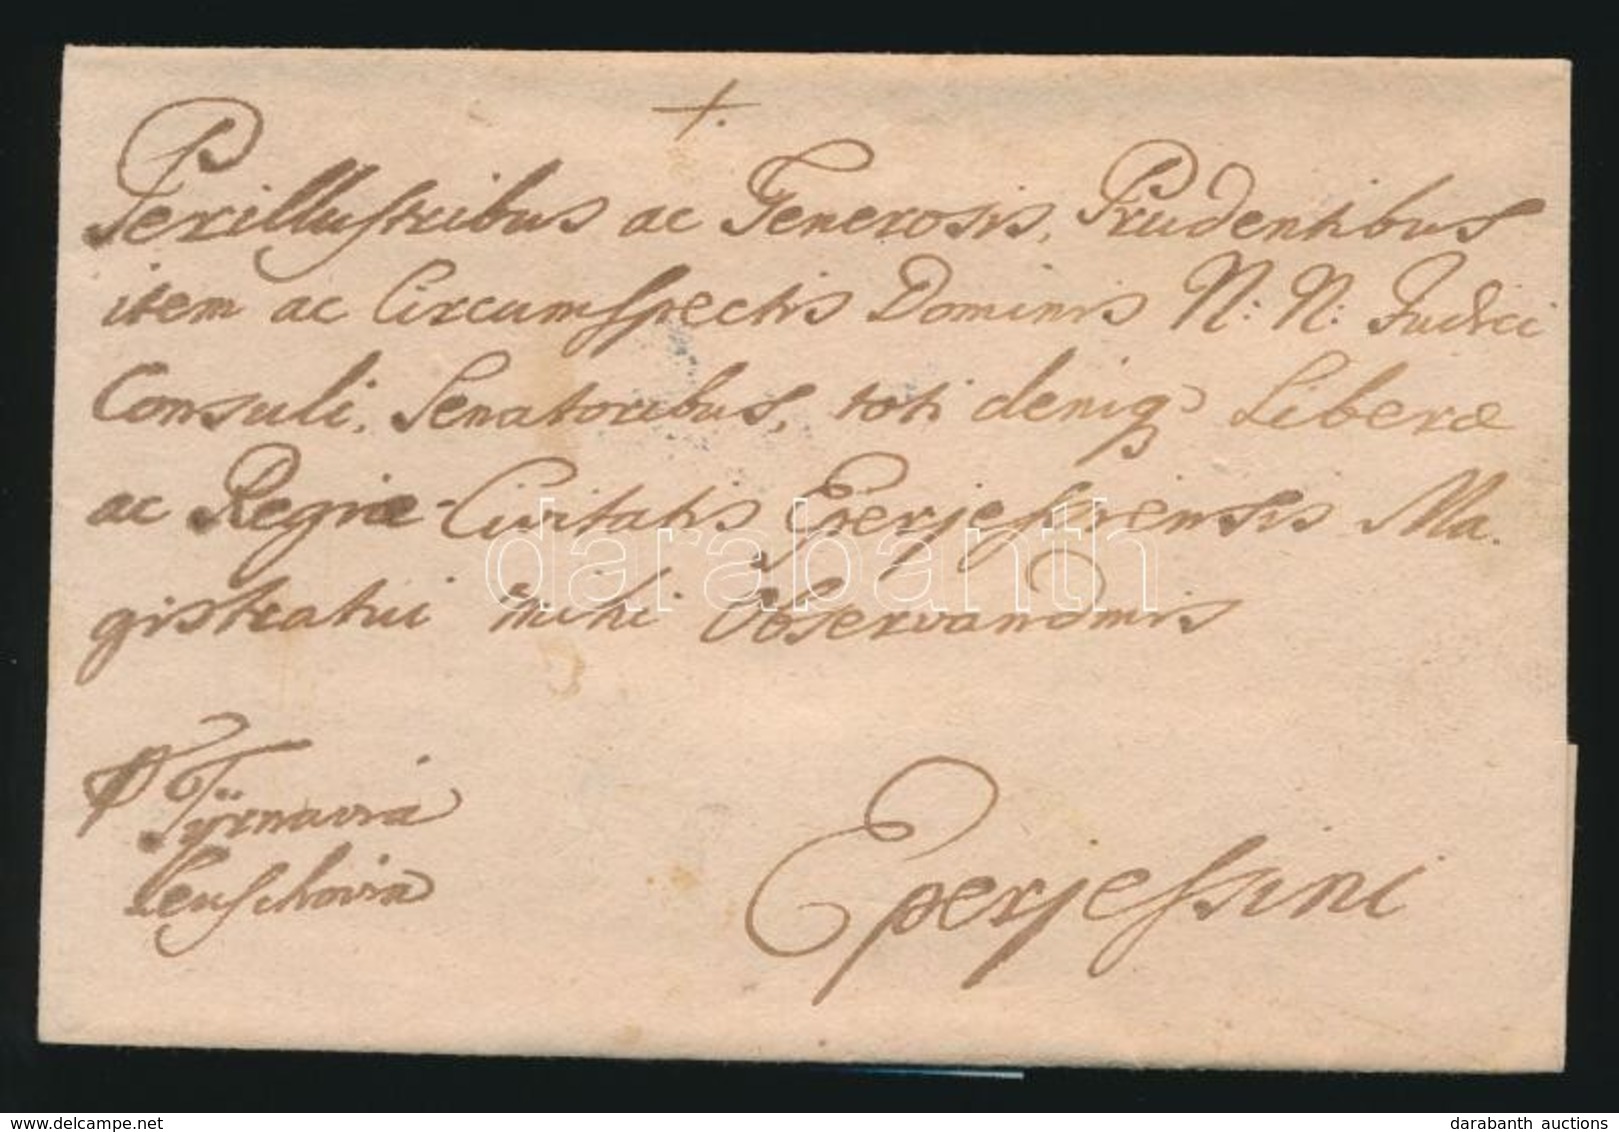 +.
Perillustribus ac Generosis, Prudentibus
item ac Circumspectis Dominis N: N: Judici
Consuli, Senatoribus, toti deniq Liberæ
ac Regiæ Civitatis Eperjessiensis Ma-
gistratui mihi Observandmis
p Tÿrnavia
Leuschovia
Eperjessini
darabanth
delcampe.net
darabanth auctions